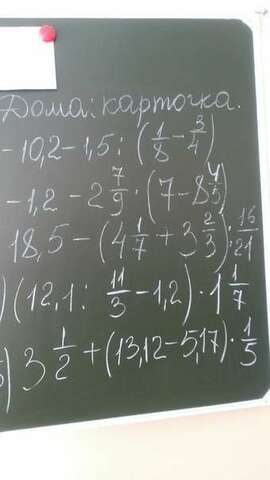 Дома: карточка.
-10,2-1,5:(1/8-3/4)
-1,2-2 7/9·(7-8 4/5)
18,5-(4 1/7+3 2/3):16/21
)(12,1:11/3-1,2)·1 1/7
)3 1/2+(13,12-5,17)·1/5